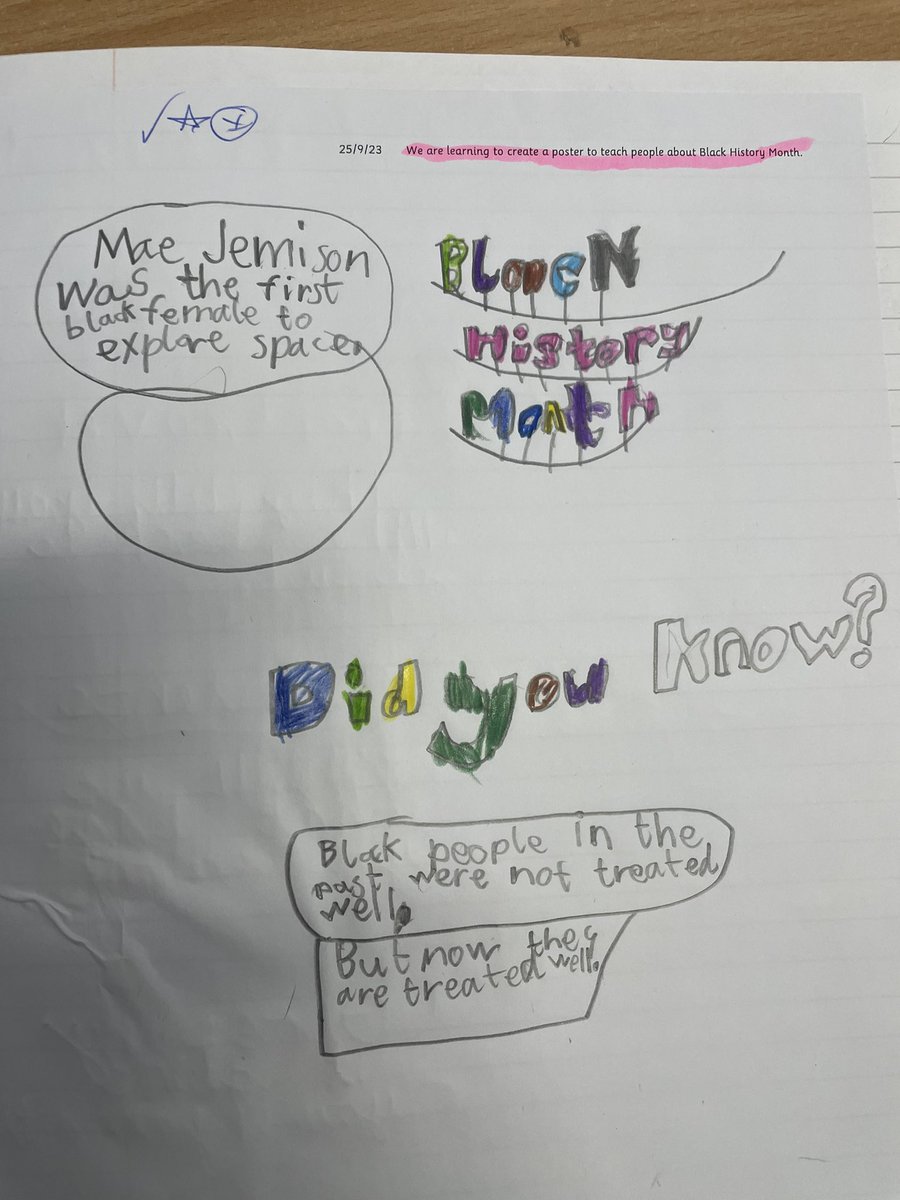 25/9/23 We are learning to create a poster to teach people about Black History Month.
Mae Jemison
was the first
black female to
explore space.
Black
History
Month
Did you know?
Black people in the
past were not treated
well.
But now they
are treated well.